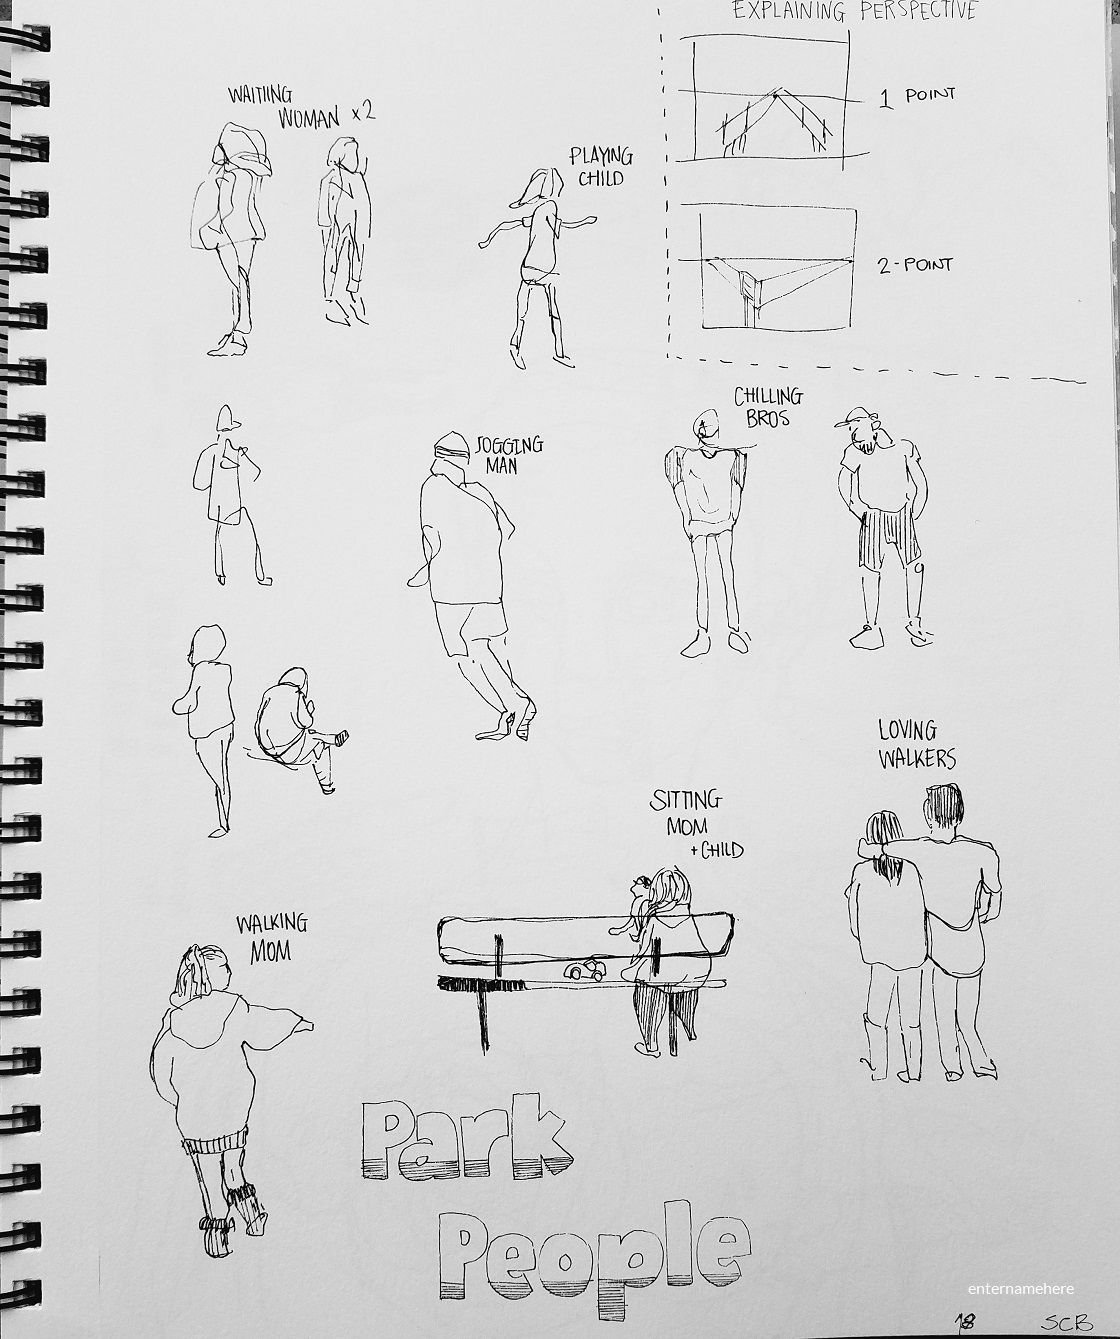 EXPLAINING PERSPECTIVE
1 POINT
2-POINT
WAITING
WOMAN x2
PLAYING
CHILD
JOGGING
MAN
CHILLING
BROS
LOVING
WALKERS
SITTING
MOM
+ CHILD
WALKING
MOM
Park
People
enternamehere
18 SCB